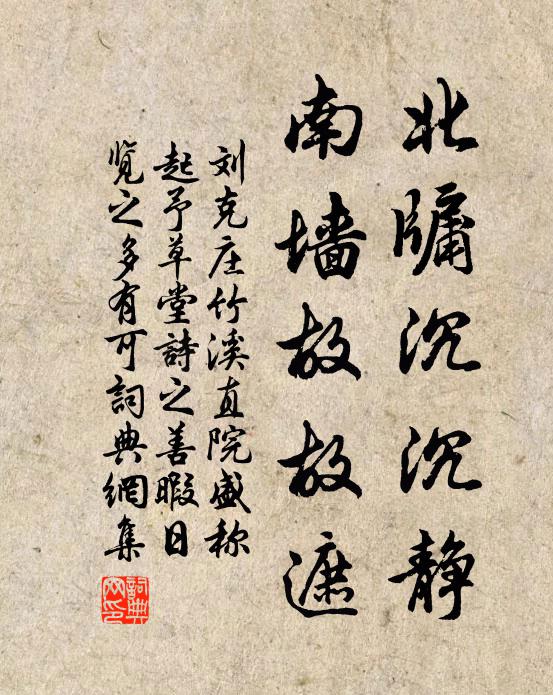 北牖沉沉静
南墙故故遮
刘克庄竹溪直院盛称
起予草堂詩之善暇日
览之多有可詞典網集
詞典
网印